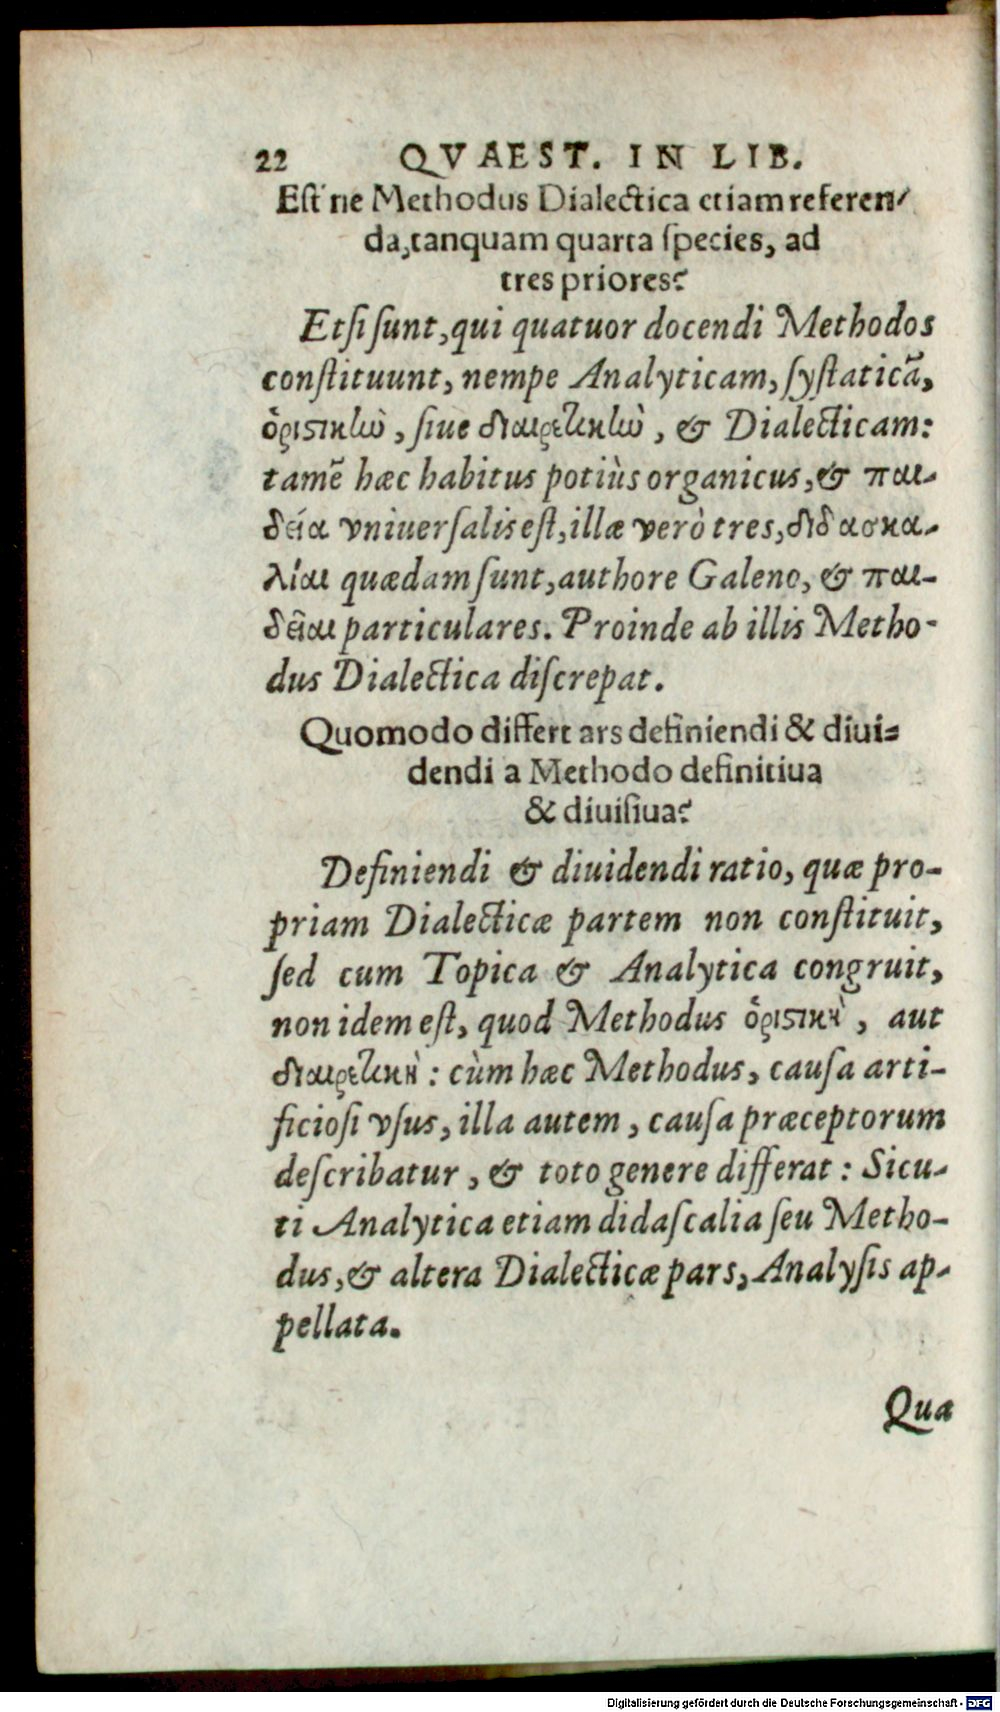 22 QVAEST. IN LIB.
Eſt ne Methodus Dialectica etiam referen-
da, tanquam quarta ſpecies, ad
tres priores?
Etſi ſunt, qui quatuor docendi Methodos
conſtituunt, nempe Analyticam, ſyſtaticã,
ὁριστικὴν, ſiue διαιρετικὴν, & Dialecticam:
tamẽ hæc habitus potiùs organicus, & παι-
δεία vniuerſalis eſt, illæ verò tres, διδασκα-
λίαι quædam ſunt, authore Galeno, & παι-
δεῖαι particulares. Proinde ab illis Metho-
dus Dialectica diſcrepat.
Quomodo differt ars definiendi & diui-
dendi a Methodo definitiua
& diuiſiua?
Definiendi & diuidendi ratio, quæ pro-
priam Dialecticæ partem non conſtituit,
ſed cum Topica & Analytica congruit,
non idem eſt, quod Methodus ὁριστικὴ, aut
διαιρετικὴ: cùm hæc Methodus, cauſa arti-
ficioſi vſus, illa autem, cauſa præceptorum
deſcribatur, & toto genere differat: Sicu-
ti Analytica etiam didaſcalia ſeu Metho-
dus, & altera Dialecticæ pars, Analyſis ap-
pellata.
Qua
Digitalisierung gefördert durch die Deutsche Forschungsgemeinschaft - DFG